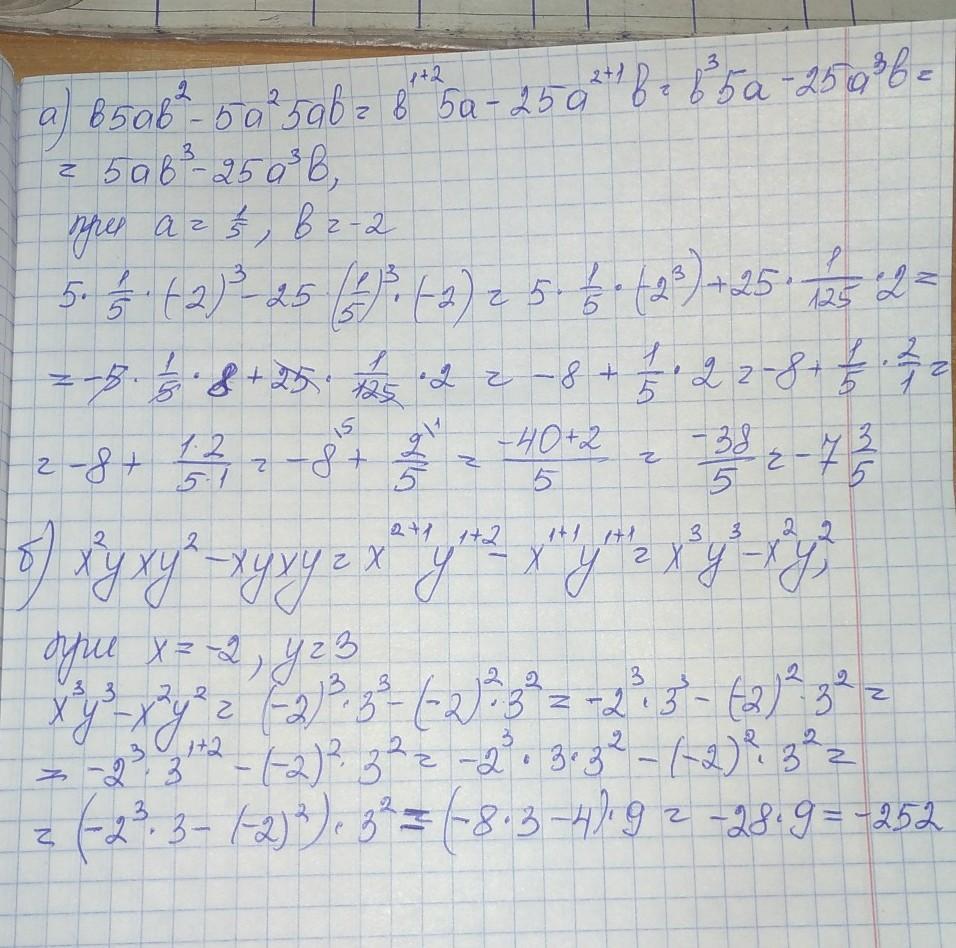 а) в5ав² - 5а²5ав = в¹⁺²5а - 25а²⁺¹в = в³5а - 25а³в =
= 5ав³ - 25а³в,
при а = 1/5, в = -2
5 · 1/5 · (-2)³ - 25 · (1/5)³ · (-2) = 5 · 1/5 · (-2³) + 25 · 1/125 · 2 =
= -5 · 1/5 · 8 + 25 · 1/125 · 2 = -8 + 1/5 · 2 = -8 + 1/5 · 2/1 =
= -8 + 1·2/5·1 = -8\5 + 2\1/5 = -40+2/5 = -38/5 = -7 3/5
б) x²yxy² - xyxy = x²⁺¹y¹⁺² - x¹⁺¹y¹⁺¹ = x³y³ - x²y²,
при x = -2, y = 3
x³y³ - x²y² = (-2)³ · 3³ - (-2)² · 3² = -2³ · 3³ - (-2)² · 3² =
= -2³ · 3¹⁺² - (-2)² · 3² = -2³ · 3 · 3² - (-2)² · 3² =
= (-2³ · 3 - (-2)²) · 3² = (-8 · 3 - 4) · 9 = -28 · 9 = -252